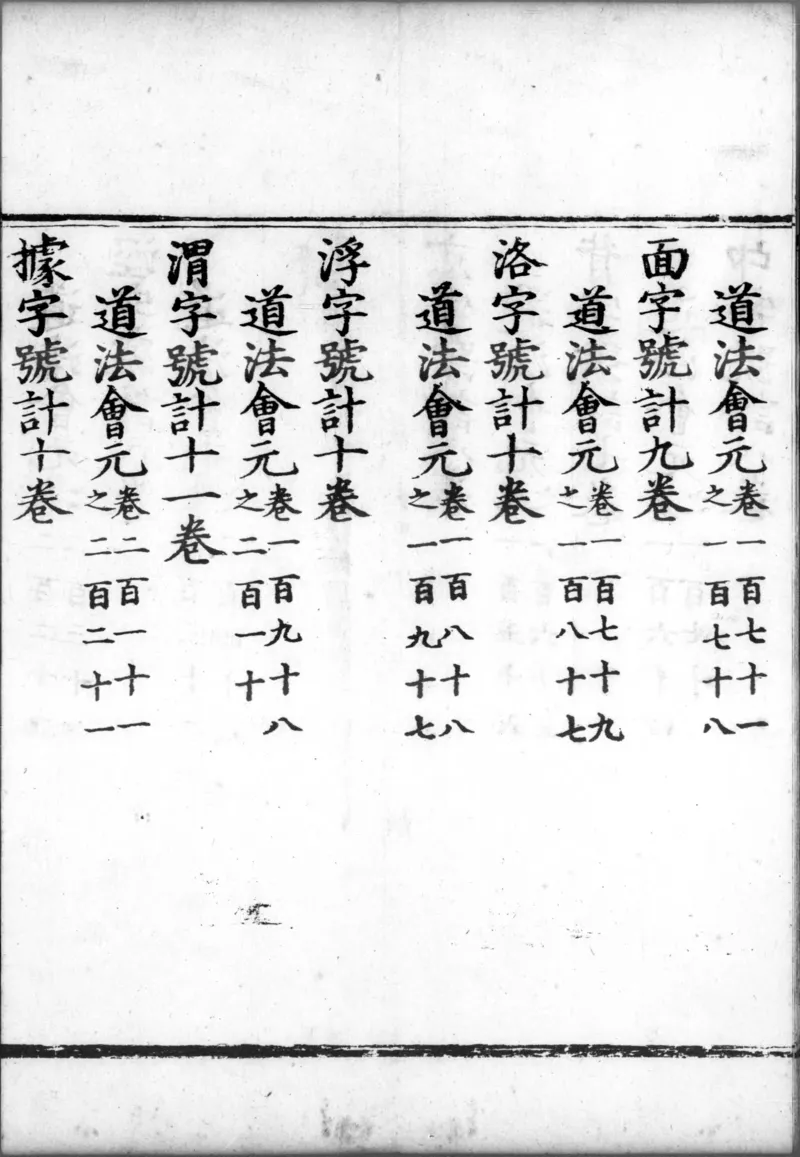 道法會元卷一百七十一之一百七十八
面字號計九卷
道法會元卷一百七十九之一百八十七
洛字號計十卷
道法會元卷一百八十八之一百九十七
浮字號計十卷
道法會元卷一百九十八之二百一十
渭字號計十一卷
道法會元卷二百一十一之二百二十一
據字號計十卷